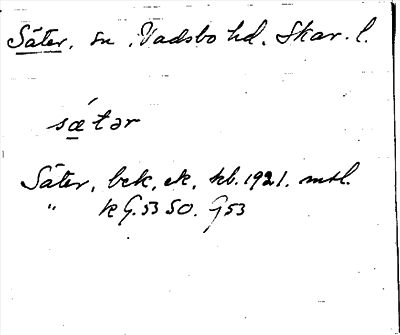 Säter, sn, Vadsbo hd. Skar. l.
sǽtər
Säter, bek, ek, kb. 1921. mtl.
" k G. 53 SO. G 53